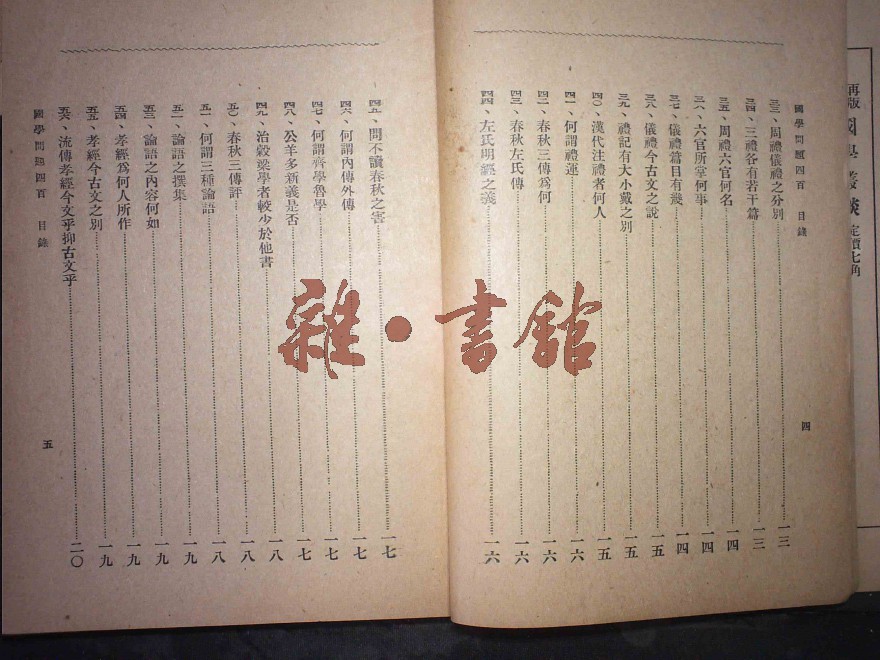 再版國學叢談 定價七角
國學問題四百 目錄
四
三三、周禮儀禮之分別 一三
三四、三禮各有若干篇 一三
三五、周禮六官何名 一四
三六、六官所掌何事 一四
三七、儀禮篇目有幾 一四
三八、儀禮今古文之說 一五
三九、禮記有大小戴之別 一五
四〇、漢代注禮者何人 一五
四一、何謂禮運 一六
四二、春秋三傳爲何 一六
四三、春秋左氏傳 一六
四四、左氏明經之義 一六
四五、問不讀春秋之害 一七
四六、何謂內傳外傳 一七
四七、何謂齊學魯學 一七
四八、公羊多新義是否 一七
四九、治穀梁學者較少於他書 一八
五〇、春秋三傳評 一八
五一、何謂三種論語 一八
五二、論語之撰集 一九
五三、論語之內容何如 一九
五四、孝經爲何人所作 一九
五五、孝經今古文之別 一九
五六、流傳孝經今文乎抑古文乎 二〇
國學問題四百 目錄
五
雜·書館